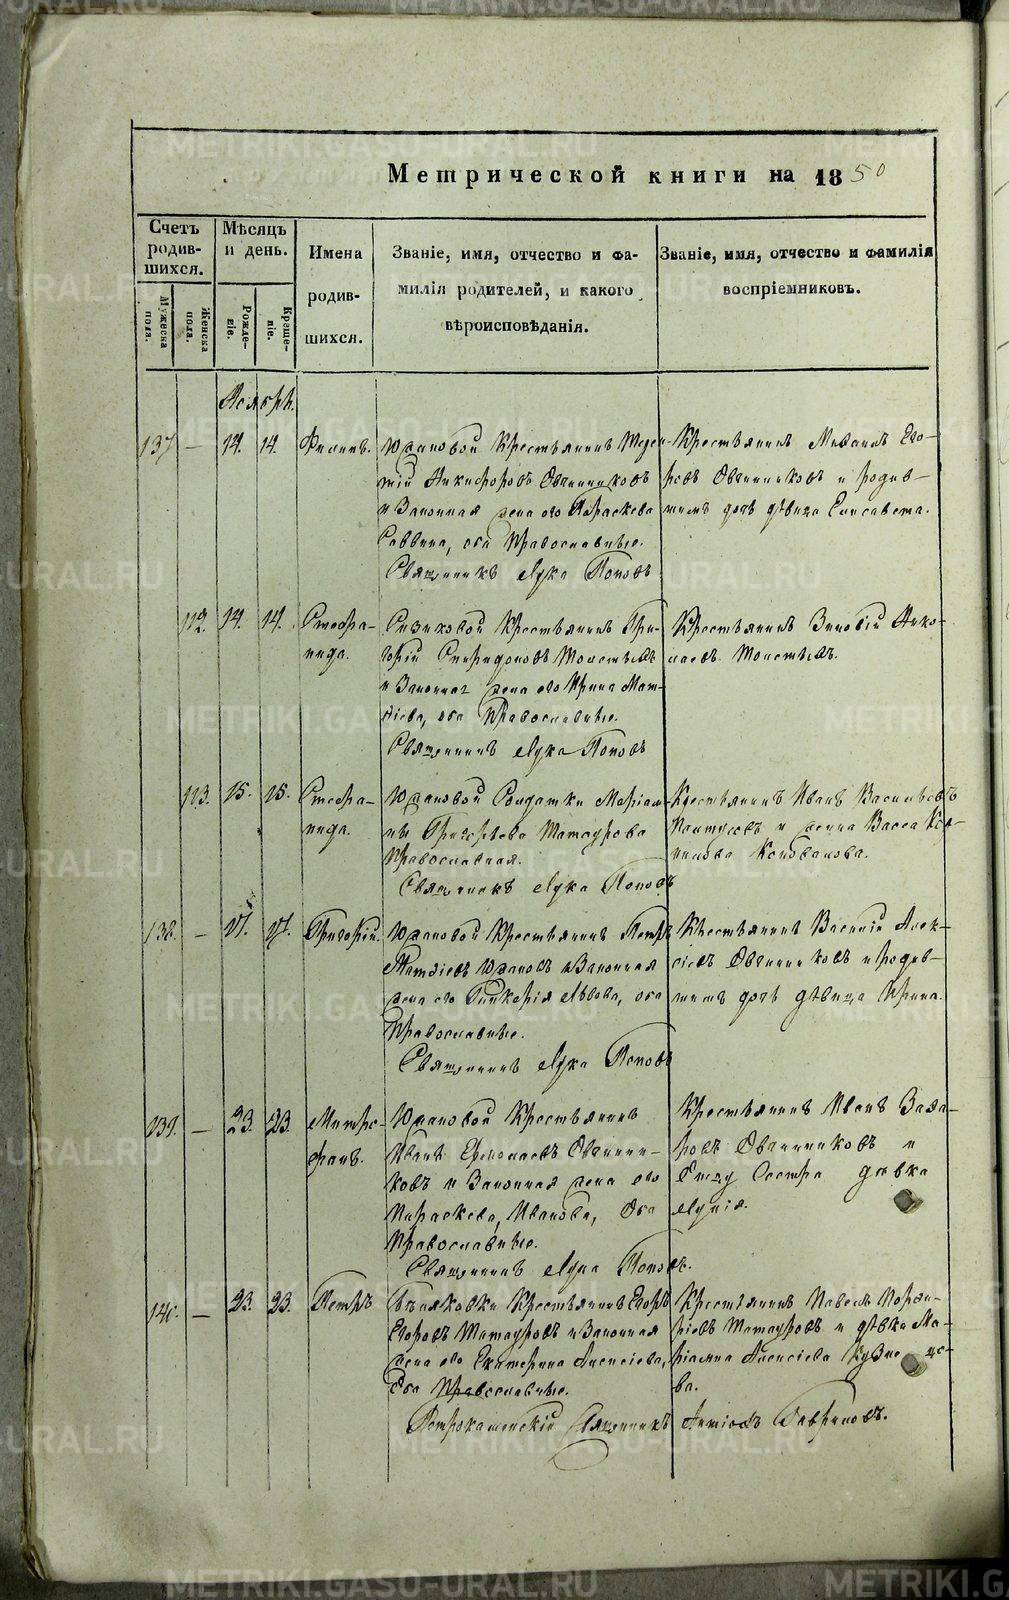 Метрической книги на 1850
Счетъ родив-шихся.
Мѣсяцъ и день.
Имена родив-шихся.
Званіе, имя, отчество и фа-
милія родителей, и какого
вѣроисповѣданія.
Званіе, имя, отчество и фамилія
воспріемниковъ.
Мужеска пола.
Женска пола.
Рожде-ніе.
Креще-ніе.
Ноябрь.
137 — 14. 14. Филипъ.
Южаковой Крестьянинъ
Никифоровъ Овчинниковъ
и Законная жена его Параскева
Саввина, оба Православные.
Священникъ Лука Поповъ
Крестьянинъ Михаилъ Его-
ровъ Овчинниковъ и родив-
шимъ дочь дѣвица Елисавета.
112. 14. 14. Стефа-
нида.
Сизиковой Крестьянинъ Гри-
горій Спиридоновъ Толстыхъ
и Законная жена его Ирина Мат-
ѳіева, оба Православные.
Священникъ Лука Поповъ
Крестьянинъ Зиновій Нико-
лаевъ Толстыхъ.
113. 15. 15. Стефа-
нида.
Южаковой Солдатки Маріам-
ны Григорьева Матаурова
Православная.
Священникъ Лука Поповъ
Крестьянинъ Иванъ Васильевъ
и жонка Васса
Коновалова.
138. — 17. 17. Григорій.
Южаковой Крестьянинъ Петръ
Матѳіевъ Южаковъ и Законная
жена его Гликерія Львова, оба
Православные.
Священникъ Лука Поповъ
Крестьянинъ Василій Алек-
сіевъ Овчинниковъ и родив-
шимъ дочь дѣвица Ирина.
139. — 23. 23. Митро-
фанъ.
Южаковой Крестьянинъ
Иванъ Ермолаевъ Овчинни-
ковъ и Законная жена его
Параскева Иванова, Оба
Православные.
Священникъ Лука Поповъ.
Крестьянинъ Иванъ Заха-
ровъ Овчинниковъ и
Отцу Сестра дѣвка
140. — 23. 23. Петръ
Бѣляковки Крестьянинъ Егоръ
Егоровъ Матауровъ и Законная
жена его Екатерина Алексіева,
Оба Православные.
Петрокаменскій Священникъ Антоній Гавриловъ.
Крестьянинъ Павелъ Порфи-
ріевъ Матауровъ и дѣвка Ма-
ріамна Алексіева Кузнецо-
ва.